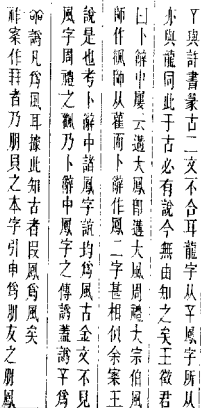 與許書篆古二文不合耳龍字从鳳字所从
亦與龍同此于古必有說今無由知之矣王徵君
曰卜辭中屢云遘大鳳卽遘大風周禮大宗伯風
師作飌師从雚而卜辭作鳳二字甚相似余案王
說是也考卜辭中諸鳳字誼均爲風古金文不見
風字周禮之飌乃卜辭中鳳字之傳譌蓋譌爲
譌凡爲風耳據此知古者叚鳳爲風矣
祥案作者乃朋貝之本字引申爲朋友之朋鳳